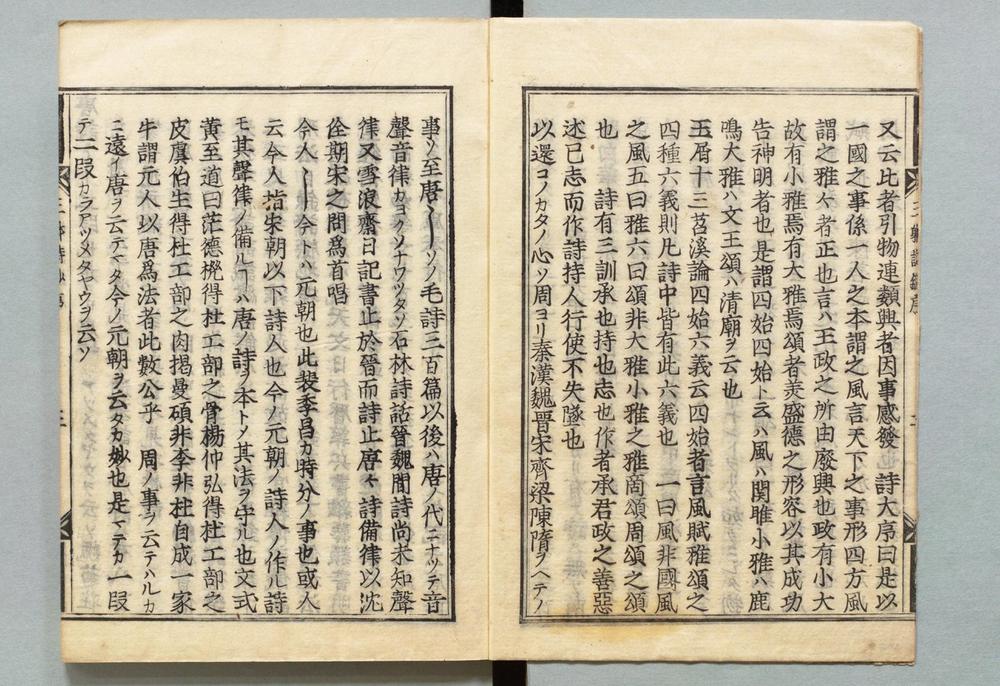 又云比者引物連類興者因事感發　詩大序曰是以
一國之事係一人之本謂之風言天下之事形四方風
謂之雅々者正也言ハ王政之所由廢興也政有小大
故有小雅焉有大雅焉頌者美盛德之形容以其成功
告神明者也是謂四始四始ト云ハ風ハ関雎小雅ハ鹿
鳴大雅ハ文王頌ハ清廟ヲ云也
玉屑十三苕溪論四始六義云四始者言風賦雅頌之
四種六義則凡詩中皆有此六義也　一曰風非國風
之風五曰雅六曰頌非大雅小雅之雅商頌周頌之頌
也　詩有三訓承也持也志也作者承君政之善惡
述己志而作詩持人行使不失墜也
以還コノカタノ心ソ周ヨリ秦漢魏晋宋齊梁陳隋ヲヘテノ
事ソ至唐〳〵ソノ毛詩三百篇以後ハ唐ノ代ニナツテ音
聲音律カヨクソナワツタソ石林詩話晉魏間詩尚未知聲
律又雪浪齋日記書止於晉而詩止唐々詩備律以沈
佺期宋之問爲首唱
今人〳〵今トハ元朝也此裴季昌カ時分ノ事也或人
云今人指宋朝以下詩人也今ノ元朝ノ詩人ノ作ル詩
モ其聲律ノ備ルヿハ唐ノ詩ヲ本トソ其法ヲ守ル也文式
黄至道曰茫德機得杜工部之骨楊仲弘得杜工部之
皮虞伯生得杜工部之肉揭曼碩非李非杜自成一家
牛謂元人以唐爲法者此數公乎　周ノ事ヲ云テハルカ
ニ遠イ唐ヲ云テマタ今ノ元朝ヲ云タカ妙也是マテカ一段
テ二段カラアツメタヤウヲ云ソ